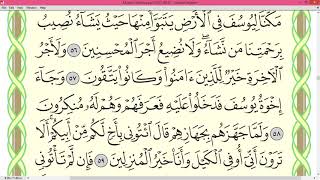 مَكَّنَّا لِيُوسُفَ فِي ٱلْأَرْضِ يَتَبَوَّأُ مِنْهَا حَيْثُ يَشَآءُ نُصِيبُ
بِرَحْمَتِنَا مَن نَّشَآءُ وَلَا نُضِيعُ أَجْرَ ٱلْمُحْسِنِينَ ٥٦ وَلَأَجْرُ
ٱلْآخِرَةِ خَيْرٌ لِّلَّذِينَ ءَامَنُوا۟ وَكَانُوا۟ يَتَّقُونَ ٥٧ وَجَآءَ
إِخْوَةُ يُوسُفَ فَدَخَلُوا۟ عَلَيْهِ فَعَرَفَهُمْ وَهُمْ لَهُۥ مُنكِرُونَ
٥٨ وَلَمَّا جَهَّزَهُم بِجَهَازِهِمْ قَالَ ٱئْتُونِي بِأَخٍ لَّكُم مِّنْ أَبِيكُمْ أَلَا
تَرَوْنَ أَنِّيٓ أُوفِي ٱلْكَيْلَ وَأَنَا۠ خَيْرُ ٱلْمُنزِلِينَ ٥٩ فَإِن لَّمْ تَأْتُونِي